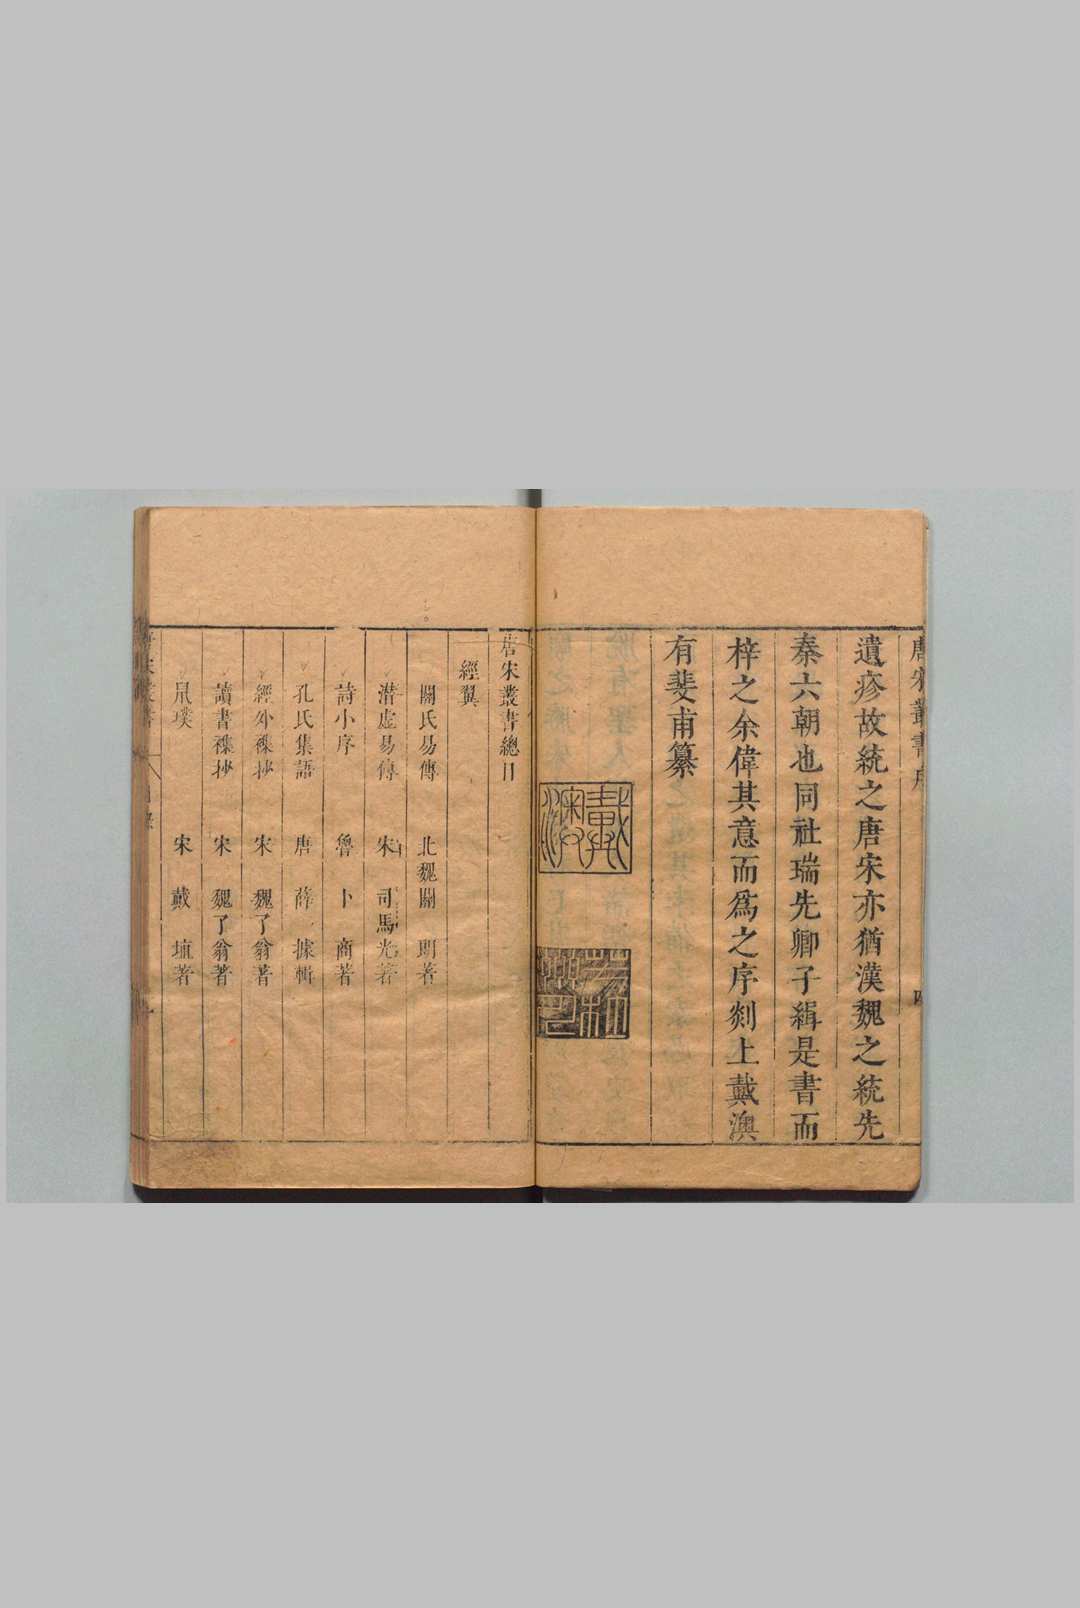 唐宋叢書序
遺疹故統之唐宋亦猶漢魏之統先
秦六朝也同社瑞先卿子緝是書而
梓之余偉其意而爲之序剡上戴澳
有斐甫纂
四
戴澳
唐宋叢書總目
經翼
關氏易傳 北魏關 朗著
潛虛易傳 宋 司馬光著
詩小序 魯 卜 商著
孔氏集語 唐 薛 據輯
經外襍抄 宋 魏了翁著
讀書襍抄 宋 魏了翁著
鼠璞 宋 戴 埴著
唐宋叢書